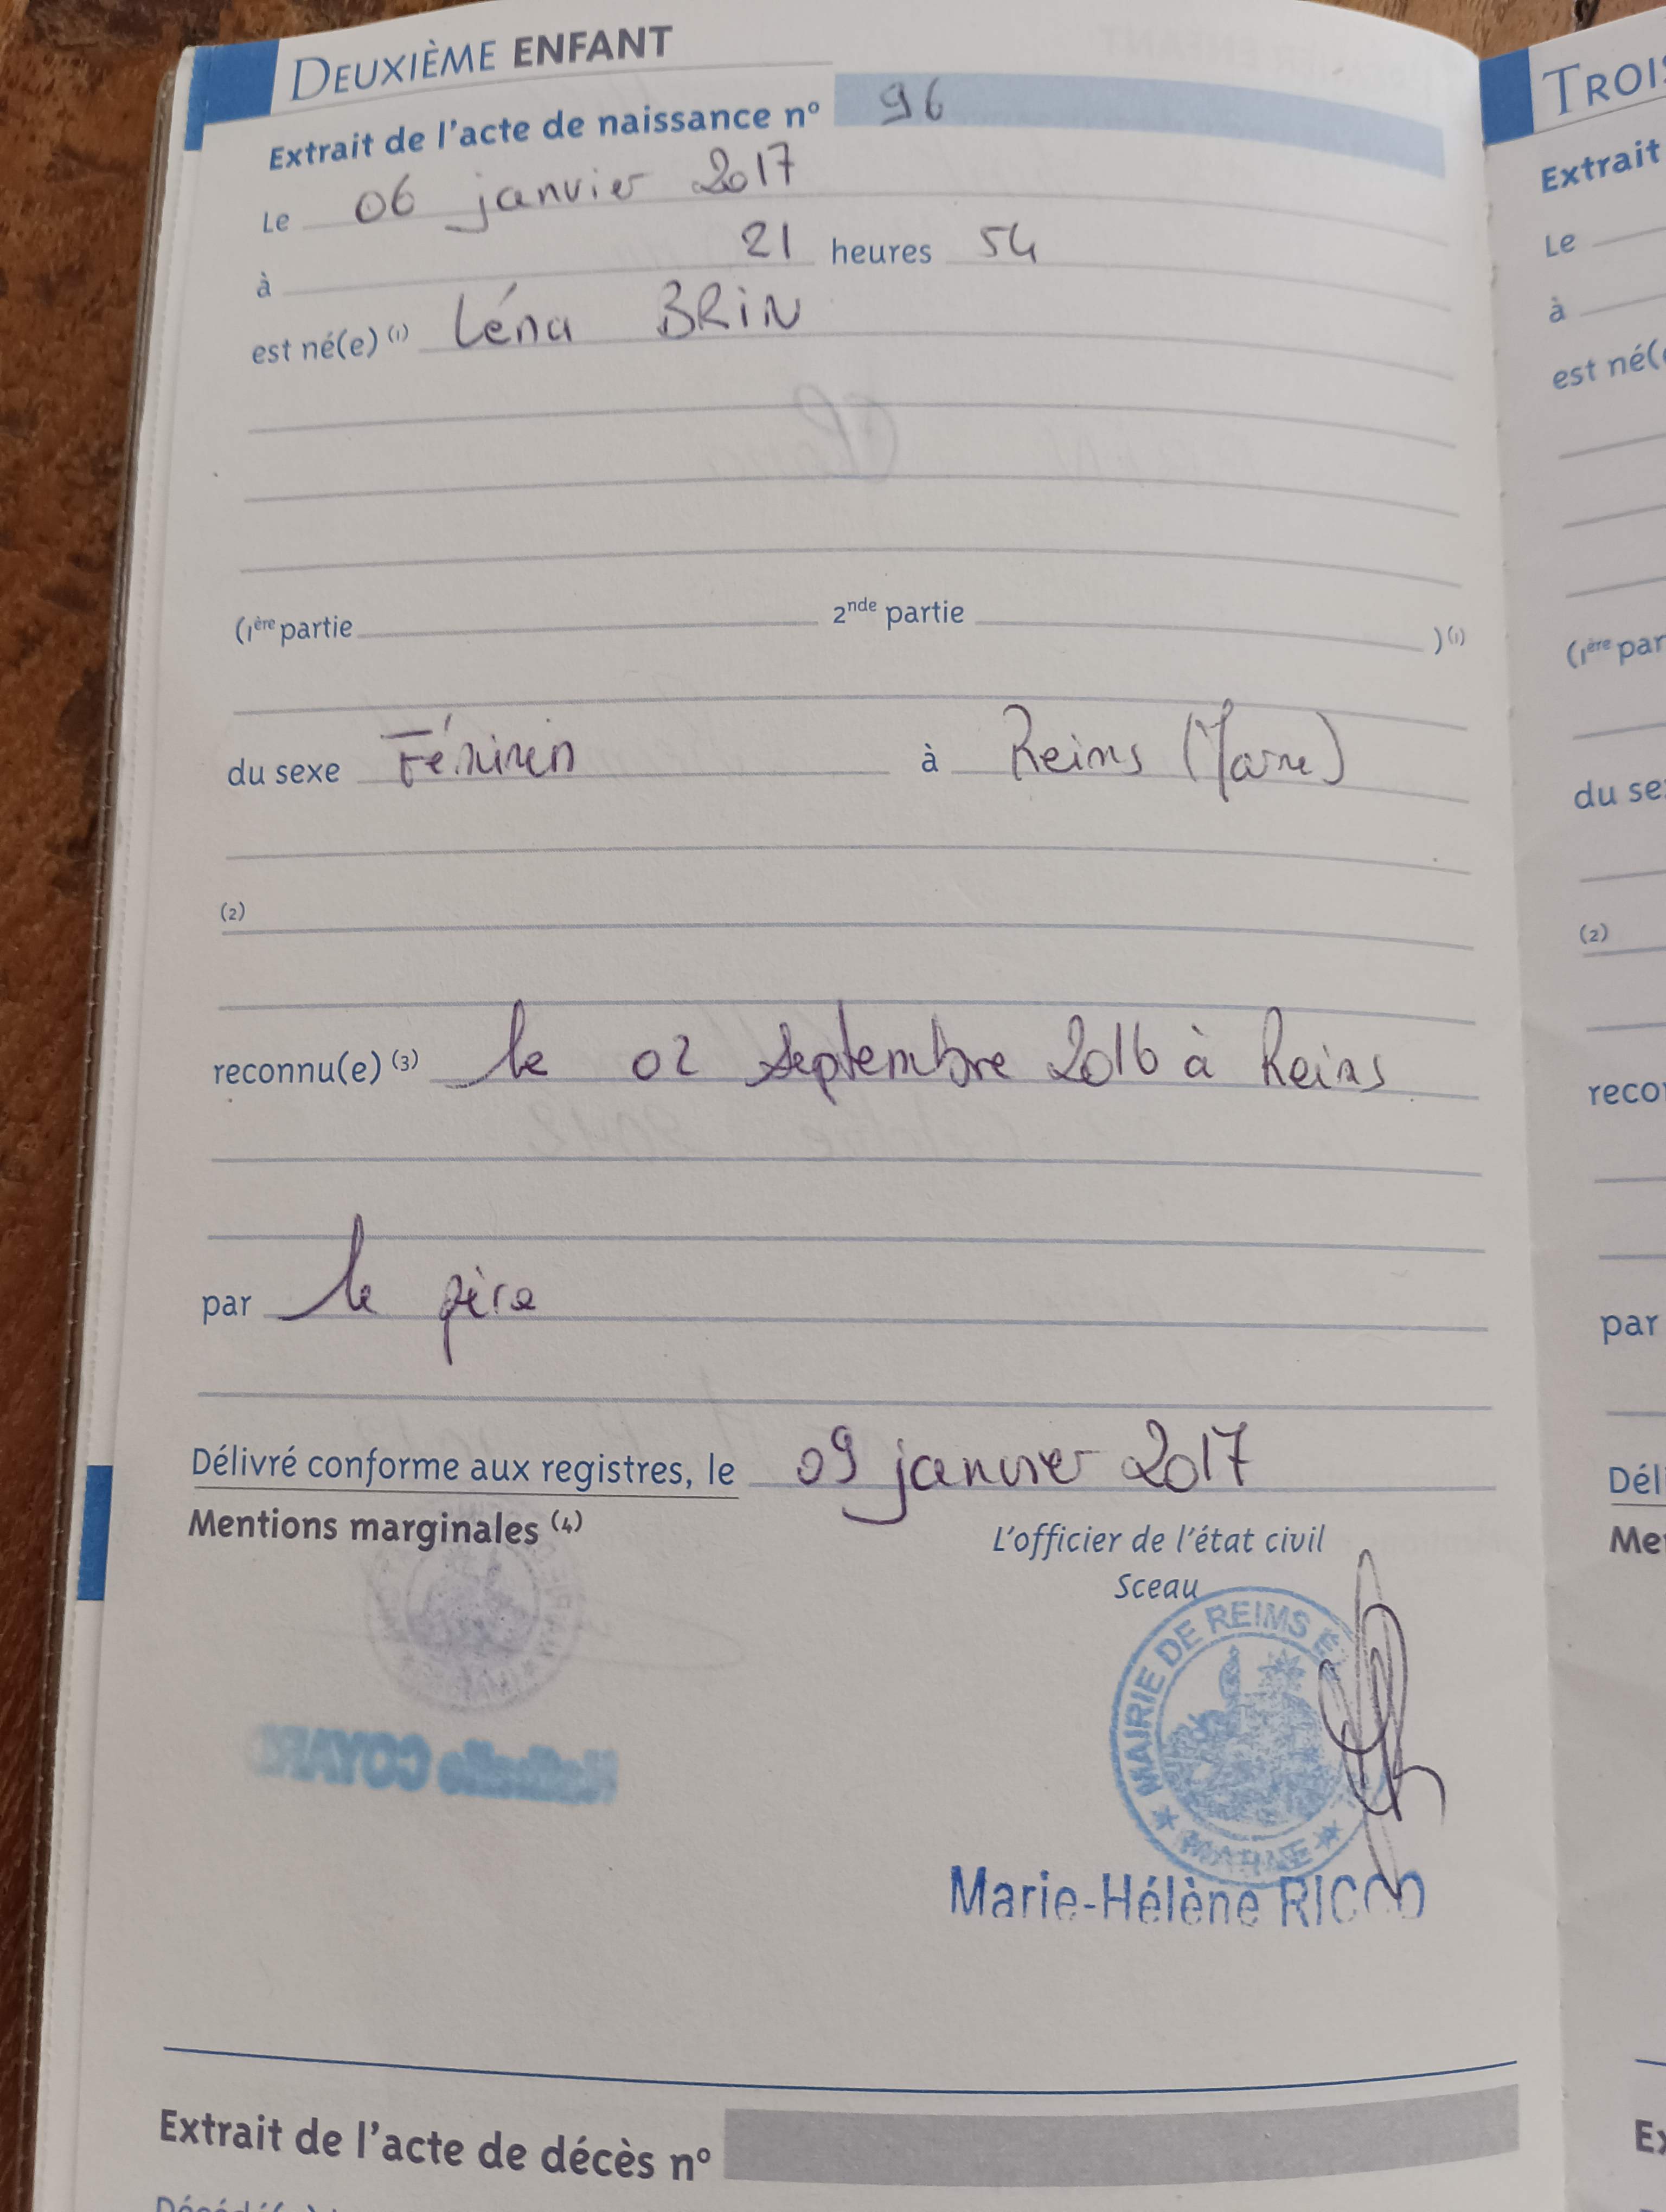 DEUXIÈME ENFANT
Extrait de l'acte de naissance n° 96
Le 06 janvier 2017
à 21 heures 54
est né(e) (1) Léna BRIN
(1ère partie 2nde partie )(1)
du sexe Féminin à Reims (Marne)
(2)
reconnu(e) (3) le 02 septembre 2016 à Reims
par le père
Délivré conforme aux registres, le 09 janvier 2017
Mentions marginales (4)
L'officier de l'état civil
Sceau
MAIRIE DE REIMS
MARNE
Marie-Hélène RICCO
Extrait de l'acte de décès n°
TROIS
Extrait
Le
à
est né(e
(1ère par
du se
(2)
reco
par
Dél
Me